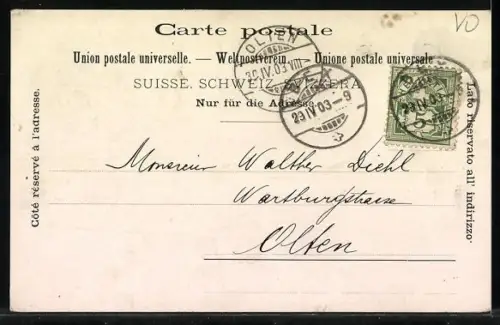 Carte postale
VD
Union postale universelle. — Weltpostverein — Unione postale universale
SUISSE. SCHWEIZ. SVIZZERA
Nur für die Adresse
OLTEN
29 IV 03 VIII
29 IV 03 - 9
29 IV 03
Côté réservé à l'adresse.
Lato riservato all' indirizzo
Monsieur Walther Diehl
Wartburgstrasse
Olten